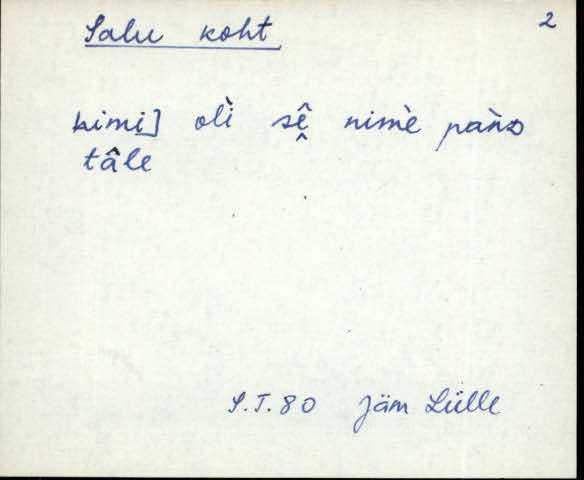 Salu koht 2
kimi] olì sḙ̂ nimè pàǹD
tâle
S.T. 80 Jäm Lülle